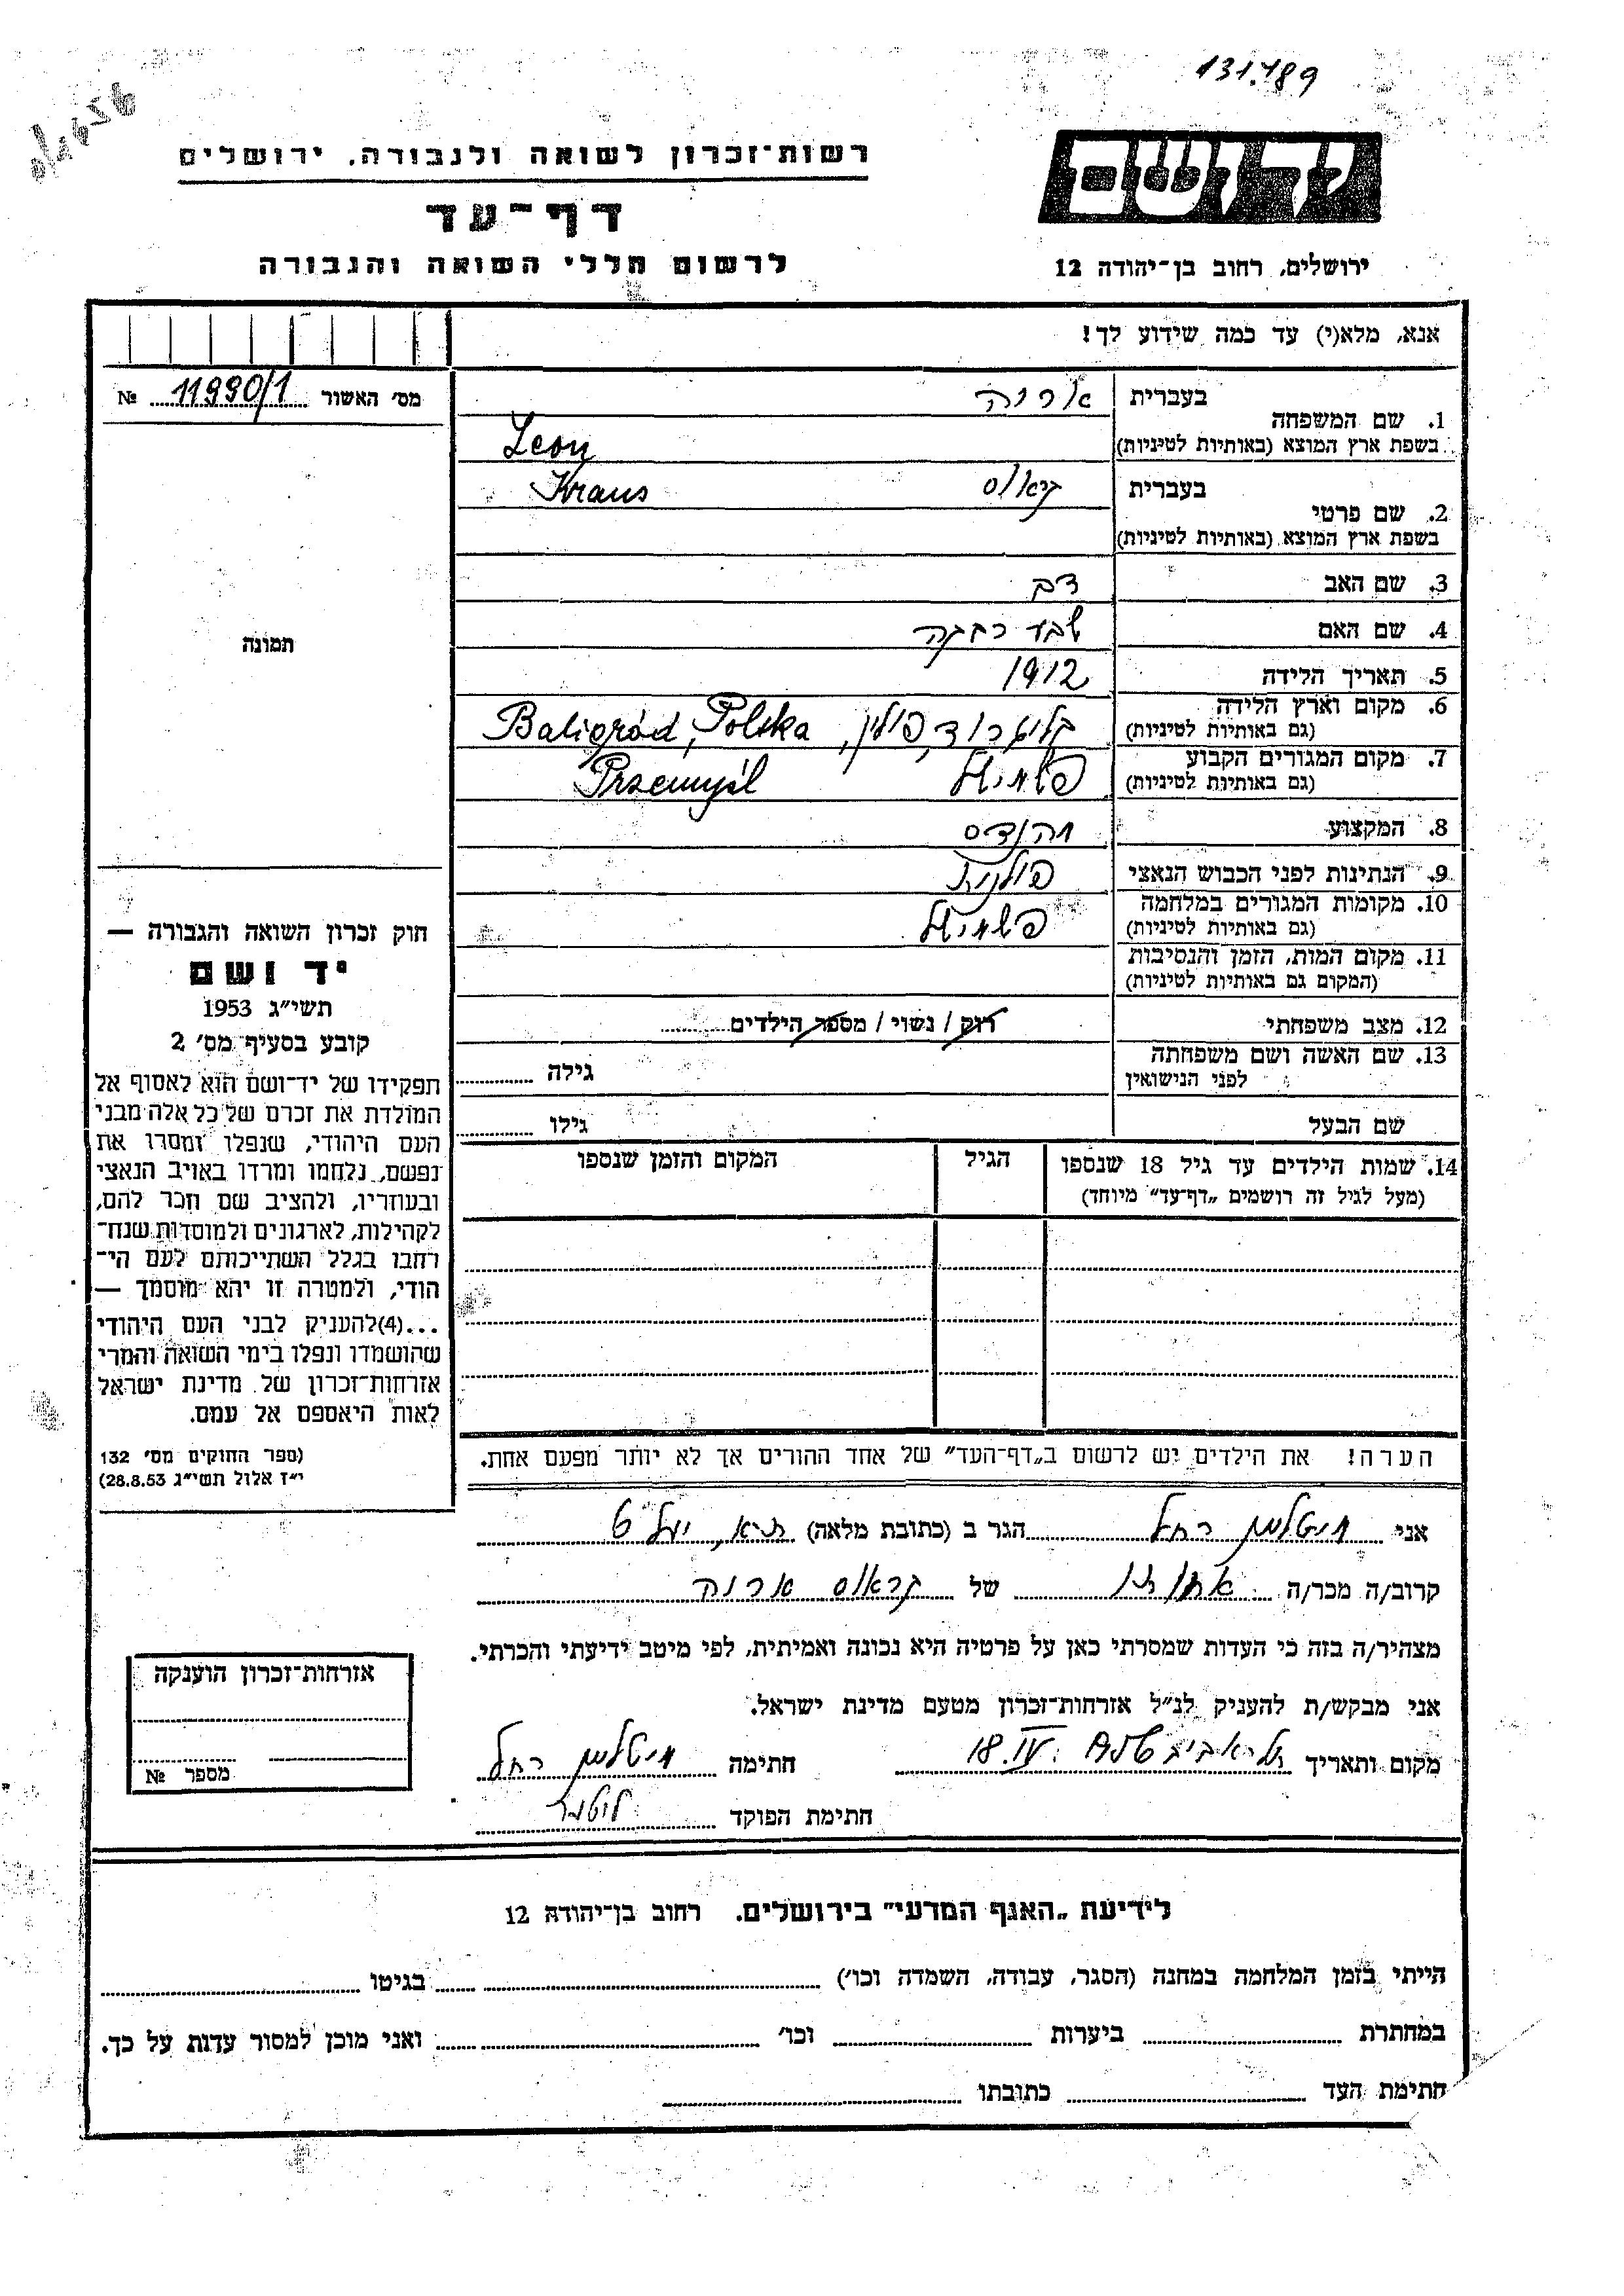 131.489
רשות־זכרון לשואה ולגבורה, ירושלים
יד ושם
דף־עד
לרשום חללי השואה והגבורה
ירושלים, רחוב בן־יהודה 12
אנא, מלא(י) עד כמה שידוע לך!
מס׳ האשור 11990/1 №
1. שם המשפחה
בעברית אריה
בשפת ארץ המוצא (באותיות לטיניות) Leon
2. שם פרטי
בעברית קראוס Kraus
בשפת ארץ המוצא (באותיות לטיניות)
3. שם האב
4. שם האם שבע רבקה
5. תאריך הלידה 1912
6. מקום וארץ הלידה (גם באותיות לטיניות) בליגרוד, פולין, Baligród, Polska
7. מקום המגורים הקבוע (גם באותיות לטיניות) פשמישל Przemyśl
8. המקצוע מהנדס
9. הנתינות לפני הכבוש הנאצי פולנית
10. מקומות המגורים במלחמה (גם באותיות לטיניות) פשמישל
11. מקום המות, הזמן והנסיבות (המקום גם באותיות לטיניות)
12. מצב משפחתי רוק / נשוי / מספר הילדים
13. שם האשה ושם משפחתה לפני הנישואין גילה
שם הבעל גילו
14. שמות הילדים עד גיל 18 שנספו (מעל לגיל זה רושמים „דף־עד״ מיוחד)
הגיל
המקום והזמן שנספו
הערה! את הילדים יש לרשום ב„דף־העד״ של אחד ההורים אך לא יותר מפעם אחת.
תמונה
חוק זכרון השואה והגבורה —
יד ושם
תשי״ג 1953
קובע בסעיף מס׳ 2
תפקידו של יד־ושם הוא לאסוף אל
המולדת את זכרם של כל אלה מבני
העם היהודי, שנפלו ומסרו את
נפשם, נלחמו ומרדו באויב הנאצי
ובעוזריו, ולהציב שם וזכר להם,
לקהילות, לארגונים ולמוסדות שנח־
רבו בגלל השתייכותם לעם הי־
הודי, ולמטרה זו יהא מוסמך —
...(4)להעניק לבני העם היהודי
שהושמדו ונפלו בימי השואה והמרי
אזרחות־זכרון של מדינת ישראל
לאות היאספם אל עמם.
(ספר החוקים מס׳ 132
י״ז אלול תשי״ג 28.8.53)
אני מיטלמן רחל הגר ב (כתובת מלאה) ת״א, יעל 6
קרוב/ה מכר/ה אחותו של קראוס אריה
מצהיר/ה בזה כי העדות שמסרתי כאן על פרטיה היא נכונה ואמיתית, לפי מיטב ידיעתי והכרתי.
אני מבקש/ת להעניק לנ״ל אזרחות־זכרון מטעם מדינת ישראל.
מקום ותאריך תל אביב 18.IV. חתימה מיטלמן רחל
חתימת הפוקד
אזרחות־זכרון הוענקה
מספר №
לידיעת „האגף המדעי״ בירושלים. רחוב בן־יהודה 12
הייתי בזמן המלחמה במחנה (הסגר, עבודה, השמדה וכו׳) בגיטו
במחתרת ביערות וכו׳ ואני מוכן למסור עדות על כך.
חתימת העד כתובתו